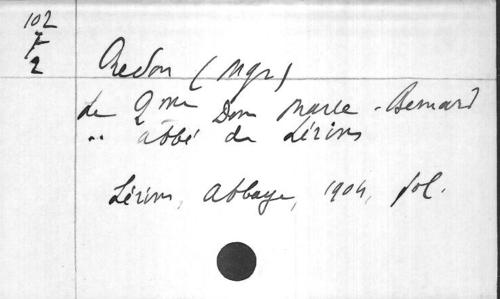 102
7
2
Redon (Mgr)
Le Rme Dom Marie-Bernard
" abbé de Lérins
Lérins, Abbaye, 1904, fol.